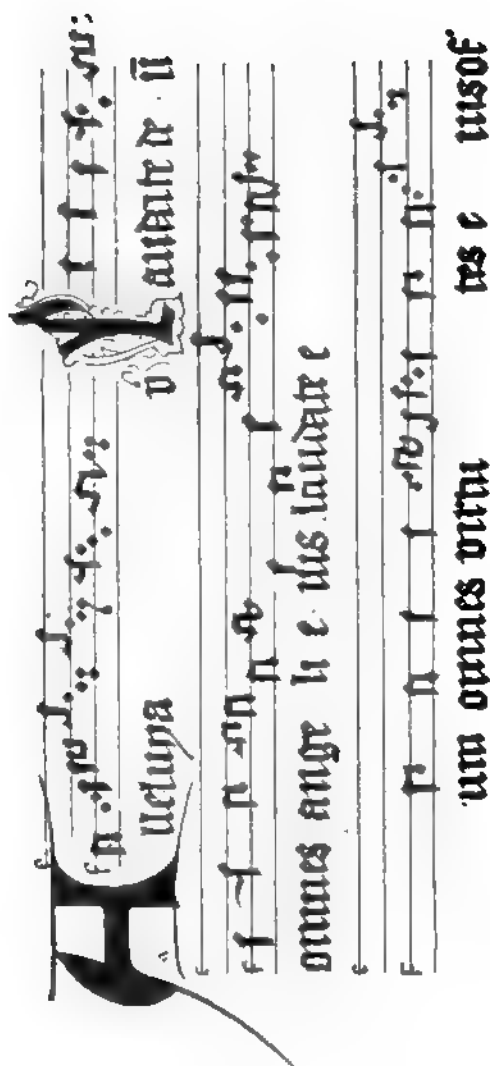 Alleluya v Laudate de · ū
omnes ange li e · ius laudate e
um omnes virtu tes e ius of